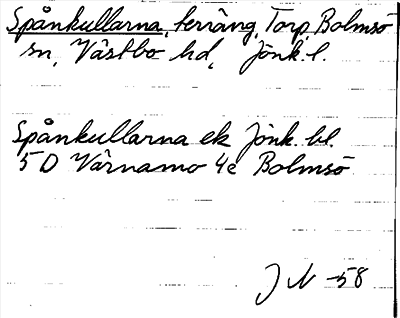 Spånkullarna, terräng, Torp, Bolmsö
sn, Västbo hd, Jönk. l.
Spånkullarna ek Jönk. bl.
5 D Värnamo 4e Bolmsö
J N -58